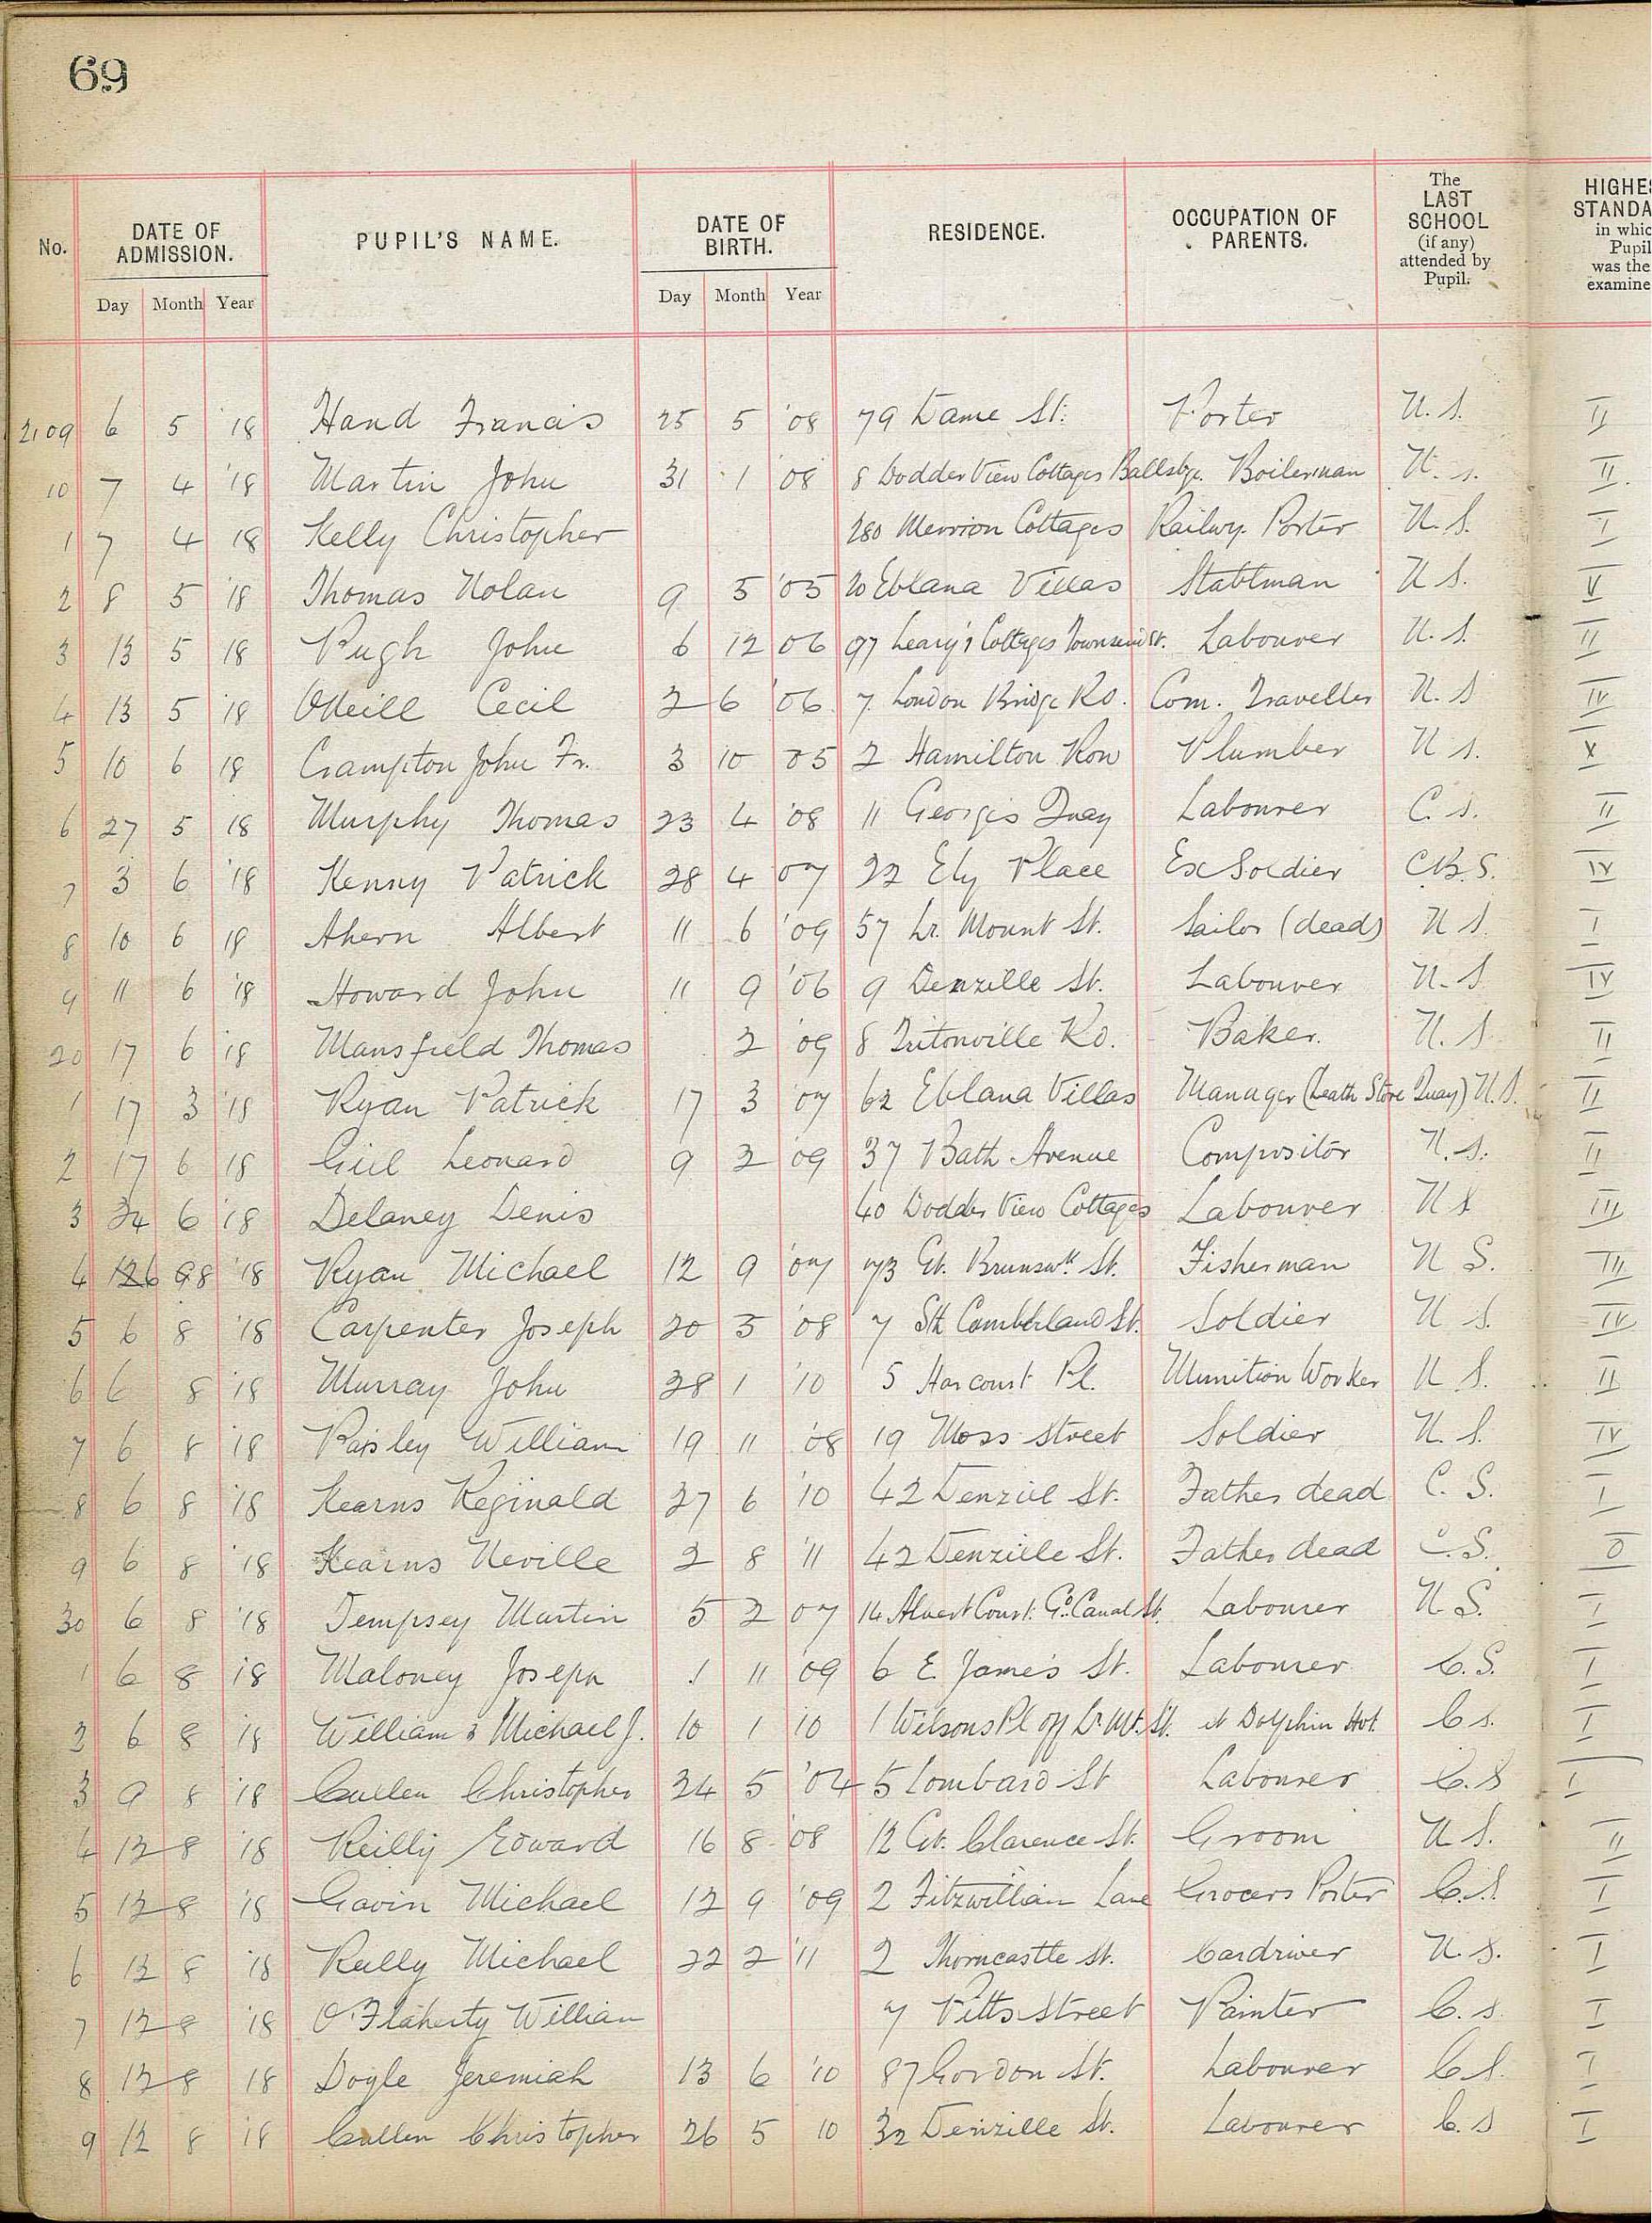 69
No. DATE OF ADMISSION. PUPIL'S NAME. DATE OF BIRTH. RESIDENCE. OCCUPATION OF PARENTS. The LAST SCHOOL (if any) attended by Pupil. HIGHES STANDA in whic Pupil was the examine
Day Month Year Day Month Year
2109 6 5 '18 Hand Francis 25 5 '08 79 Dame St. Porter N. S. II
10 7 4 '18 Martin John 31 1 '08 8 Dodder View Cottages Ballsbge. Boilerman N. S. II.
1 7 4 18 Kelly Christopher 280 Merrion Cottages Railwy. Porter N. S. I
2 8 5 '18 Thomas Nolan 9 5 '05 20 Eblana Villas Stablman N S. V
3 13 5 18 Pugh John 6 12 06 97 Leary's Cottages Townsend St. Labourer N. S. II
4 13 5 '18 O'Neill Cecil 2 6 '06 7 London Bridge Rd. Com. Traveller N. S IV
5 10 6 '18 Crampton John Fr. 3 10 05 2 Hamilton Row Plumber N S. V
6 27 5 18 Murphy Thomas 23 4 '08 11 Georges Quay Labourer C. S. II
7 3 6 '18 Kenny Patrick 28 4 07 22 Ely Place Ex Soldier C.B.S. IV
8 10 6 18 Ahern Albert 11 6 '09 57 Lr. Mount St. Sailor (dead) N S. I
9 11 6 '18 Howard John 11 9 '06 9 Denzille St. Labourer N. S IV
20 17 6 '18 Mansfield Thomas 2 '09 8 Tritonville Rd. Baker. N. S. II
1 17 3 '18 Ryan Patrick 17 3 '07 62 Eblana Villas Manager (Leath Store Quay) N. S. II
2 17 6 18 Gill Leonard 9 2 '09 37 Bath Avenue Compositor N. S. II
3 24 6 '18 Delaney Denis 40 Dodder View Cottages Labourer N S III
4 6 8 '18 Ryan Michael 12 9 '07 73 Gt. Brunswk. St. Fisherman N S. III
5 6 8 '18 Carpenter Joseph 20 5 '08 7 Sth Cumberland St. Soldier N S. IV
6 6 8 '18 Murray John 28 1 '10 5 Harcourt Pl. Munition Worker N S. II
7 6 8 '18 Paisley William 19 11 '08 19 Moss Street Soldier N. S. IV
8 6 8 '18 Kearns Reginald 27 6 '10 42 Denzill St. Father dead C. S. I
9 6 8 '18 Kearns Neville 2 8 '11 42 Denzille St. Father dead C.S. 0
30 6 8 '18 Dempsey Martin 5 2 07 14 Albert Court. Gd. Canal St. Labourer N. S. I
1 6 8 '18 Maloney Joseph 1 11 '09 6 E. James St. Labourer C. S. I
2 6 8 '18 Williams Michael J. 10 1 '10 1 Wilsons Pl off Lr. Mt. St. at Dolphin Hot. C s. I
3 9 8 '18 Cullen Christopher 24 5 '04 5 Lombard St Labourer C. S I
4 12 8 '18 Reilly Edward 16 8 '08 12 Gt. Clarence St. Groom N S. II
5 12 8 '18 Gavin Michael 12 9 '09 2 Fitzwilliam Lane Grocers Porter C. S. I
6 12 8 '18 Michael 22 2 '11 2 Thorncastle St. Cardriver N. S. I
7 12 8 '18 O'Flaherty William 7 Pitts Street Painter C. S. I
8 12 8 18 Doyle Jeremiah 13 6 '10 87 Gordon St. Labourer C S. I
9 12 8 18 Cullen Christopher 26 5 10 32 Denzille St. Labourer C. S I